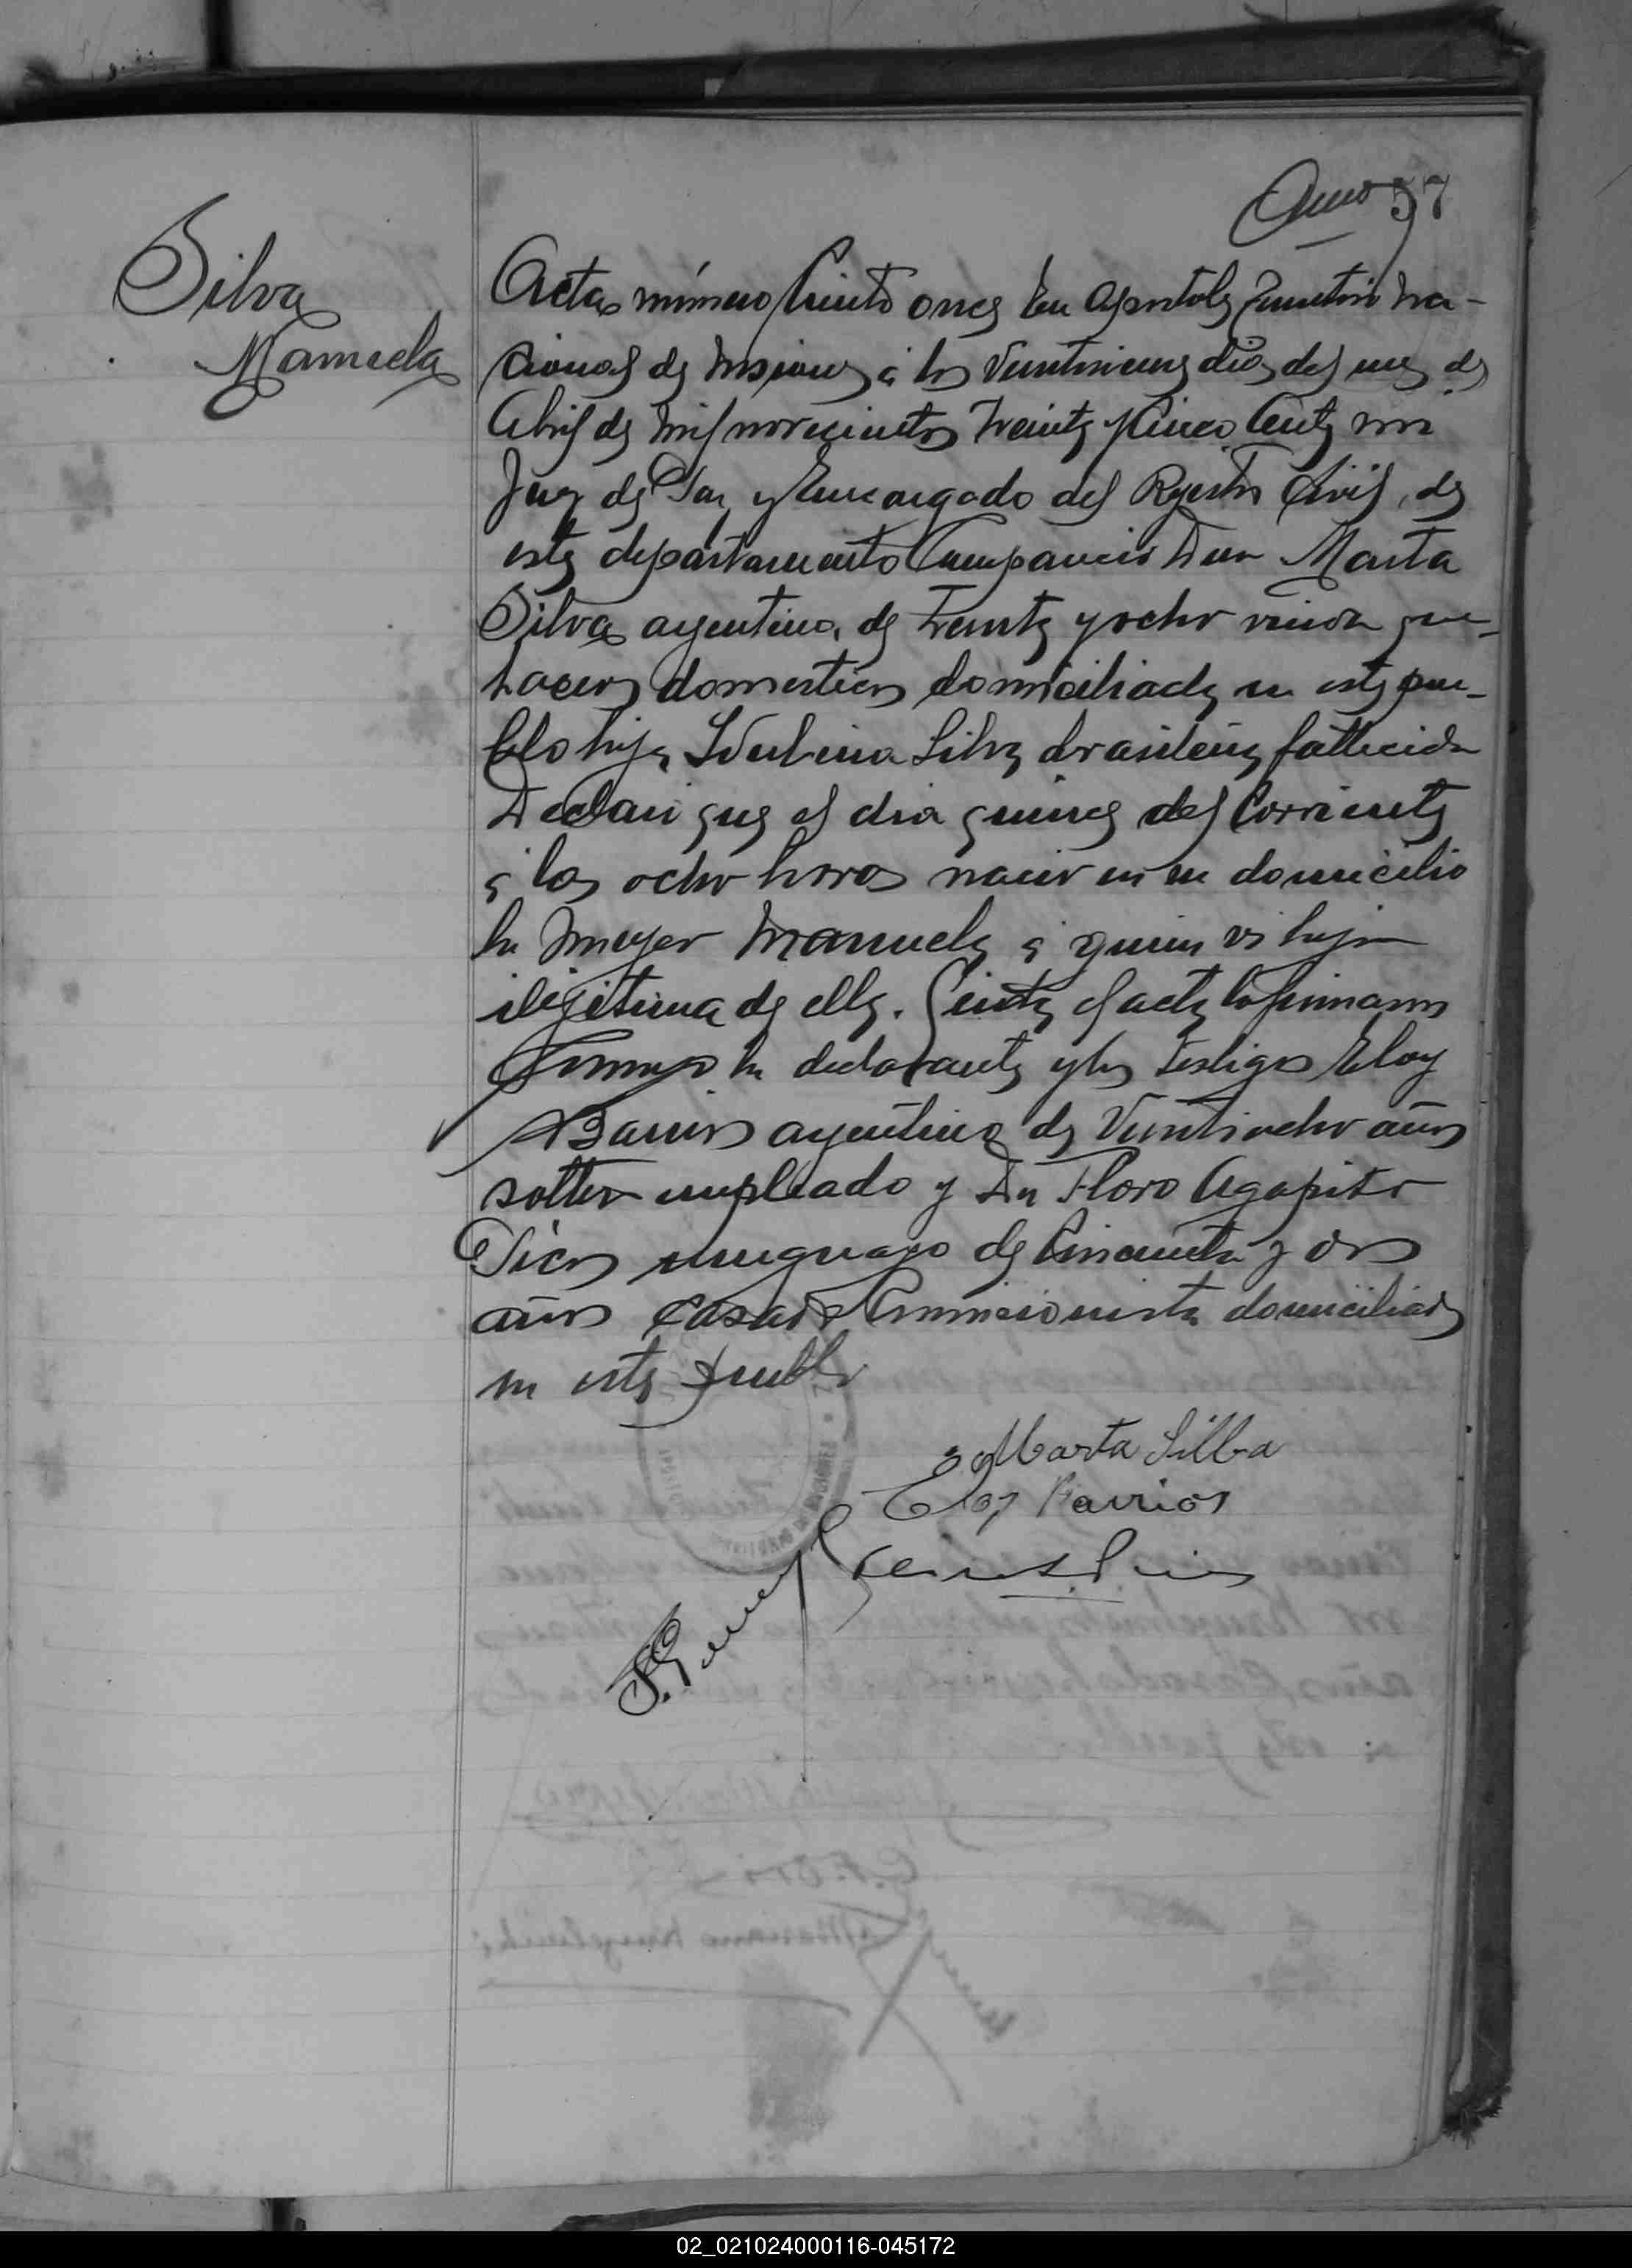 57
Silva
Manuela
Acta número Ciento once En Apostoles Territorio na-
cional de Misiones á los Veintinueve dias del mes de
Abril de mil novecientos treinta y Cinco Ante mi
Juez de Paz y Encargado del Registro Civil, de
este departamento Comparecio Doña Marta
Silva argentina, de treinta y ocho viuda que-
haceres domesticos domiciliada en este pue-
blo hija Silva brasileña fallecida
Declaró que el dia quince del Corriente
á las ocho horas nacio en su domicilio
la mujer Manuela á quien es hija
ilegitima de ella. el acta la firmaron
Conmigo la declarante y los testigos Eloy
Barrios argentino de Veintiocho años
soltero empleado y Don Floro Agapito
uruguayo de Cincuenta y dos
años casado Comisionista domiciliados
en este pueblo
Marta Silba
Eloy Barrios
02_021024000116-045172